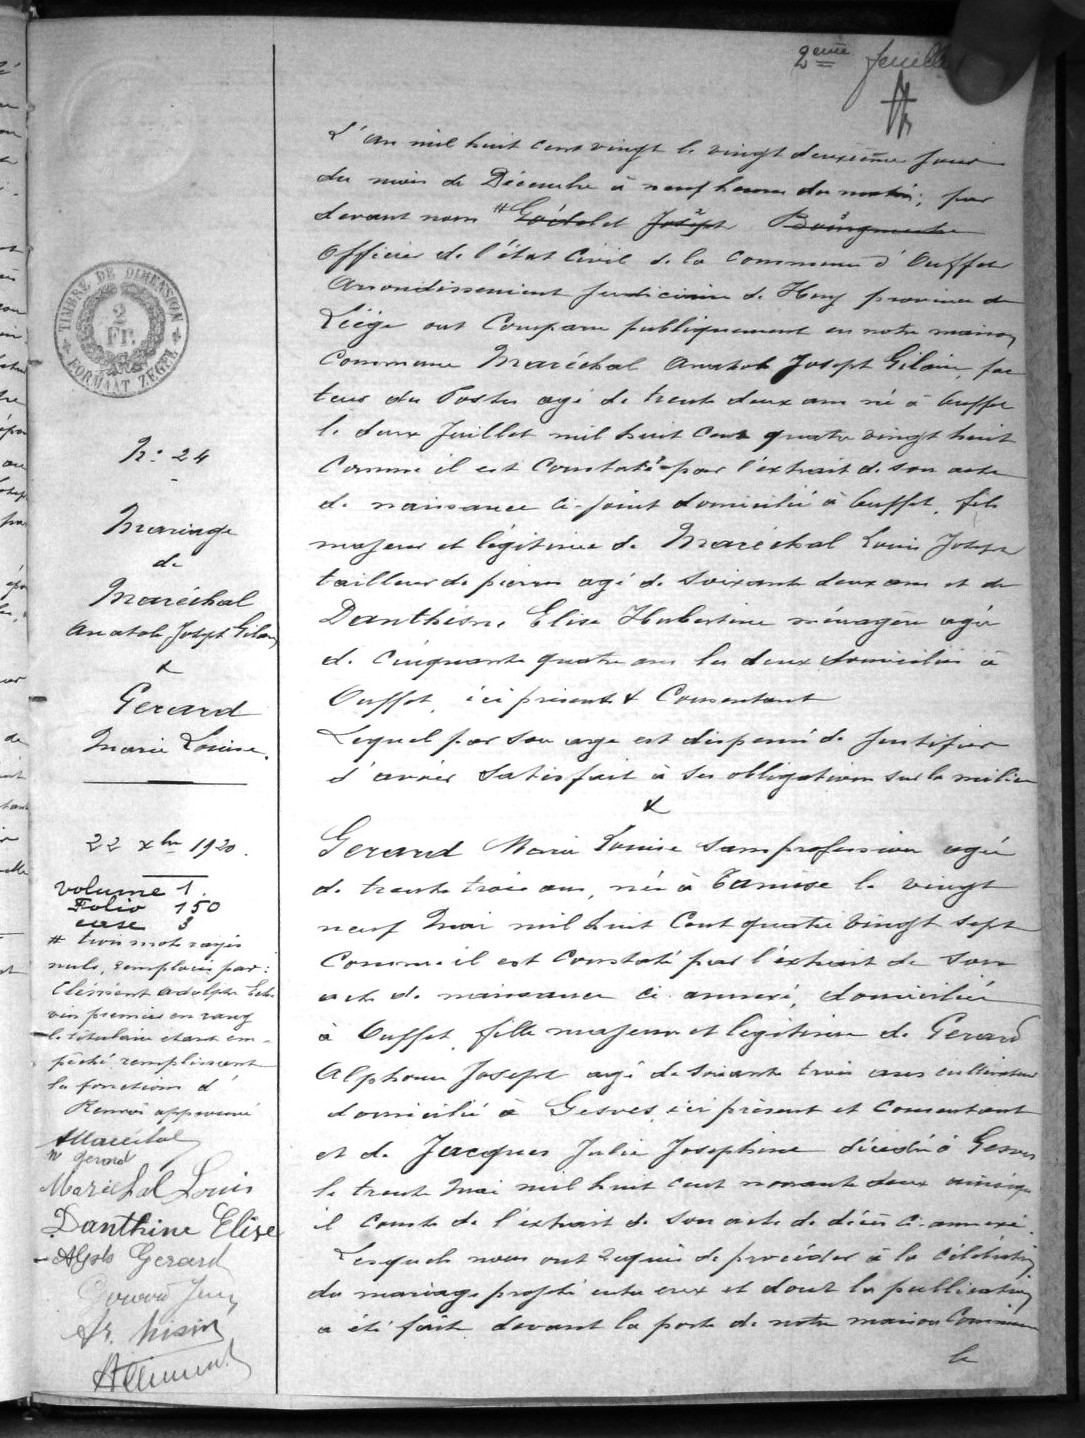 2eme feuillet
TIMBRE DE DIMENSION
2
FR.
FORMAAT ZEGEL
N: 24
Mariage
de
Maréchal
Anatole Joseph Gilain
&
Gerard
Marie Louise.
22 xbre 1920.
volume 1.
Folio 150
case 3
# trois mots rayés
nuls, remplacés par:
Clément Adolphe Eche
vin premier en rang
le titulaire étant em-
pêché remplissant
la fonction d'
Renvoi approuvé
AMaréchal
M Gerard
Maréchal Louis
Danthine Elise
Alph Gerard
AClément
L'an mil huit cent vingt le vingt deuxième jour
du mois de Décembre à neuf heures du matin; par
devant nous # Joseph
Officier de l'état Civil de la commune d'Ouffet
Arrondissement judiciaire de Huy province de
Liége ont Comparu publiquement en notre maison
commune Maréchal Anatole Joseph Gilain, fac
teur des Postes agé de trente deux ans né à Ouffet
le deux Juillet mil huit cent quatre vingt huit
comme il est constaté par l'extrait de son acte
de naissance ci-joint domicilié à Ouffet, fils
majeur et légitime de Maréchal Louis Joseph
tailleur de pierres agé de soixante deux ans et de
Danthine Elise Hubertine ménagère agée
de cinquante quatre ans les deux domiciliés à
Ouffet, ici présents & Consentant
Lequel par son age est dispensé de justifier
d'avoir satisfait à ses obligations sur la milice
&
Gerard Marie Louise sans profession agée
de trente trois ans, née à Tamise le vingt
neuf Mai mil huit Cent quatre vingt sept
Comme il est constaté par l'extrait de son
acte de naissance ci annexé, domiciliée
à Ouffet, fille majeure et légitime de Gerard
Alphonse Joseph agé de soixante trois ans cultivateur
domicilié à Gesves, ici présent et consentant
et de Jacques Julie Joséphine décédée à Gesves
le trente Mai mil huit cent nonante deux ainsi qu
il conste de l'extrait de son acte de décès ci-annexé.
Lesquels nous ont requis de procéder à la célébration
du mariage projeté entre eux et dont la publication
a été faite devant la porte de notre maison Commune
le